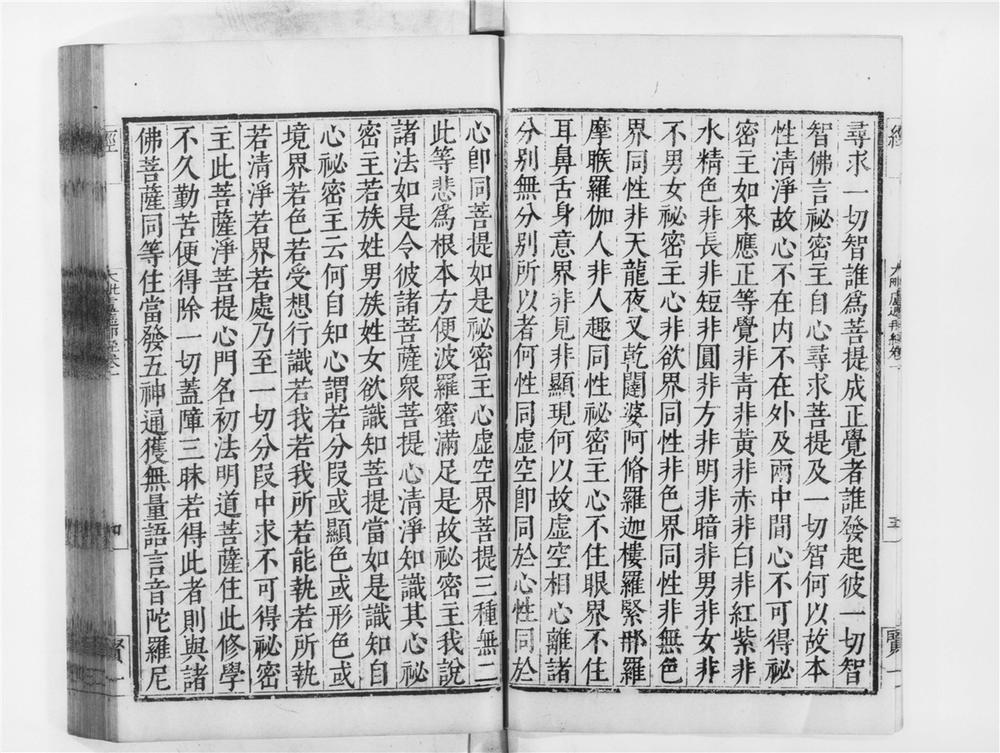 尋求一切智誰爲菩提成正覺者誰發起彼一切智
智佛言祕密主自心尋求菩提及一切智何以故本
性清淨故心不在内不在外及兩中間心不可得祕
密主如來應正等覺非青非黃非赤非白非紅紫非
水精色非長非短非圓非方非明非暗非男非女非
不男女祕密主心非欲界同性非色界同性非無色
界同性非天龍夜叉乾闥婆阿脩羅迦樓羅緊那羅
摩睺羅伽人非人趣同性祕密主心不住眼界不住
耳鼻舌身意界非見非顯現何以故虛空相心離諸
分別無分別所以者何性同虛空卽同於心性同於
心卽同菩提如是祕密主心虛空界菩提三種無二
此等悲爲根本方便波羅蜜滿足是故祕密主我說
諸法如是令彼諸菩薩衆菩提心清淨知識其心祕
密主若族姓男族姓女欲識知菩提當如是識知自
心祕密主云何自知心謂若分段或顯色或形色或
境界若色若受想行識若我若我所若能執若所執
若清淨若界若處乃至一切分段中求不可得祕密
主此菩薩淨菩提心門名初法明道菩薩住此修學
不久勤苦便得除一切蓋障三昧若得此者則與諸
佛菩薩同等住當發五神通獲無量語言音陀羅尼